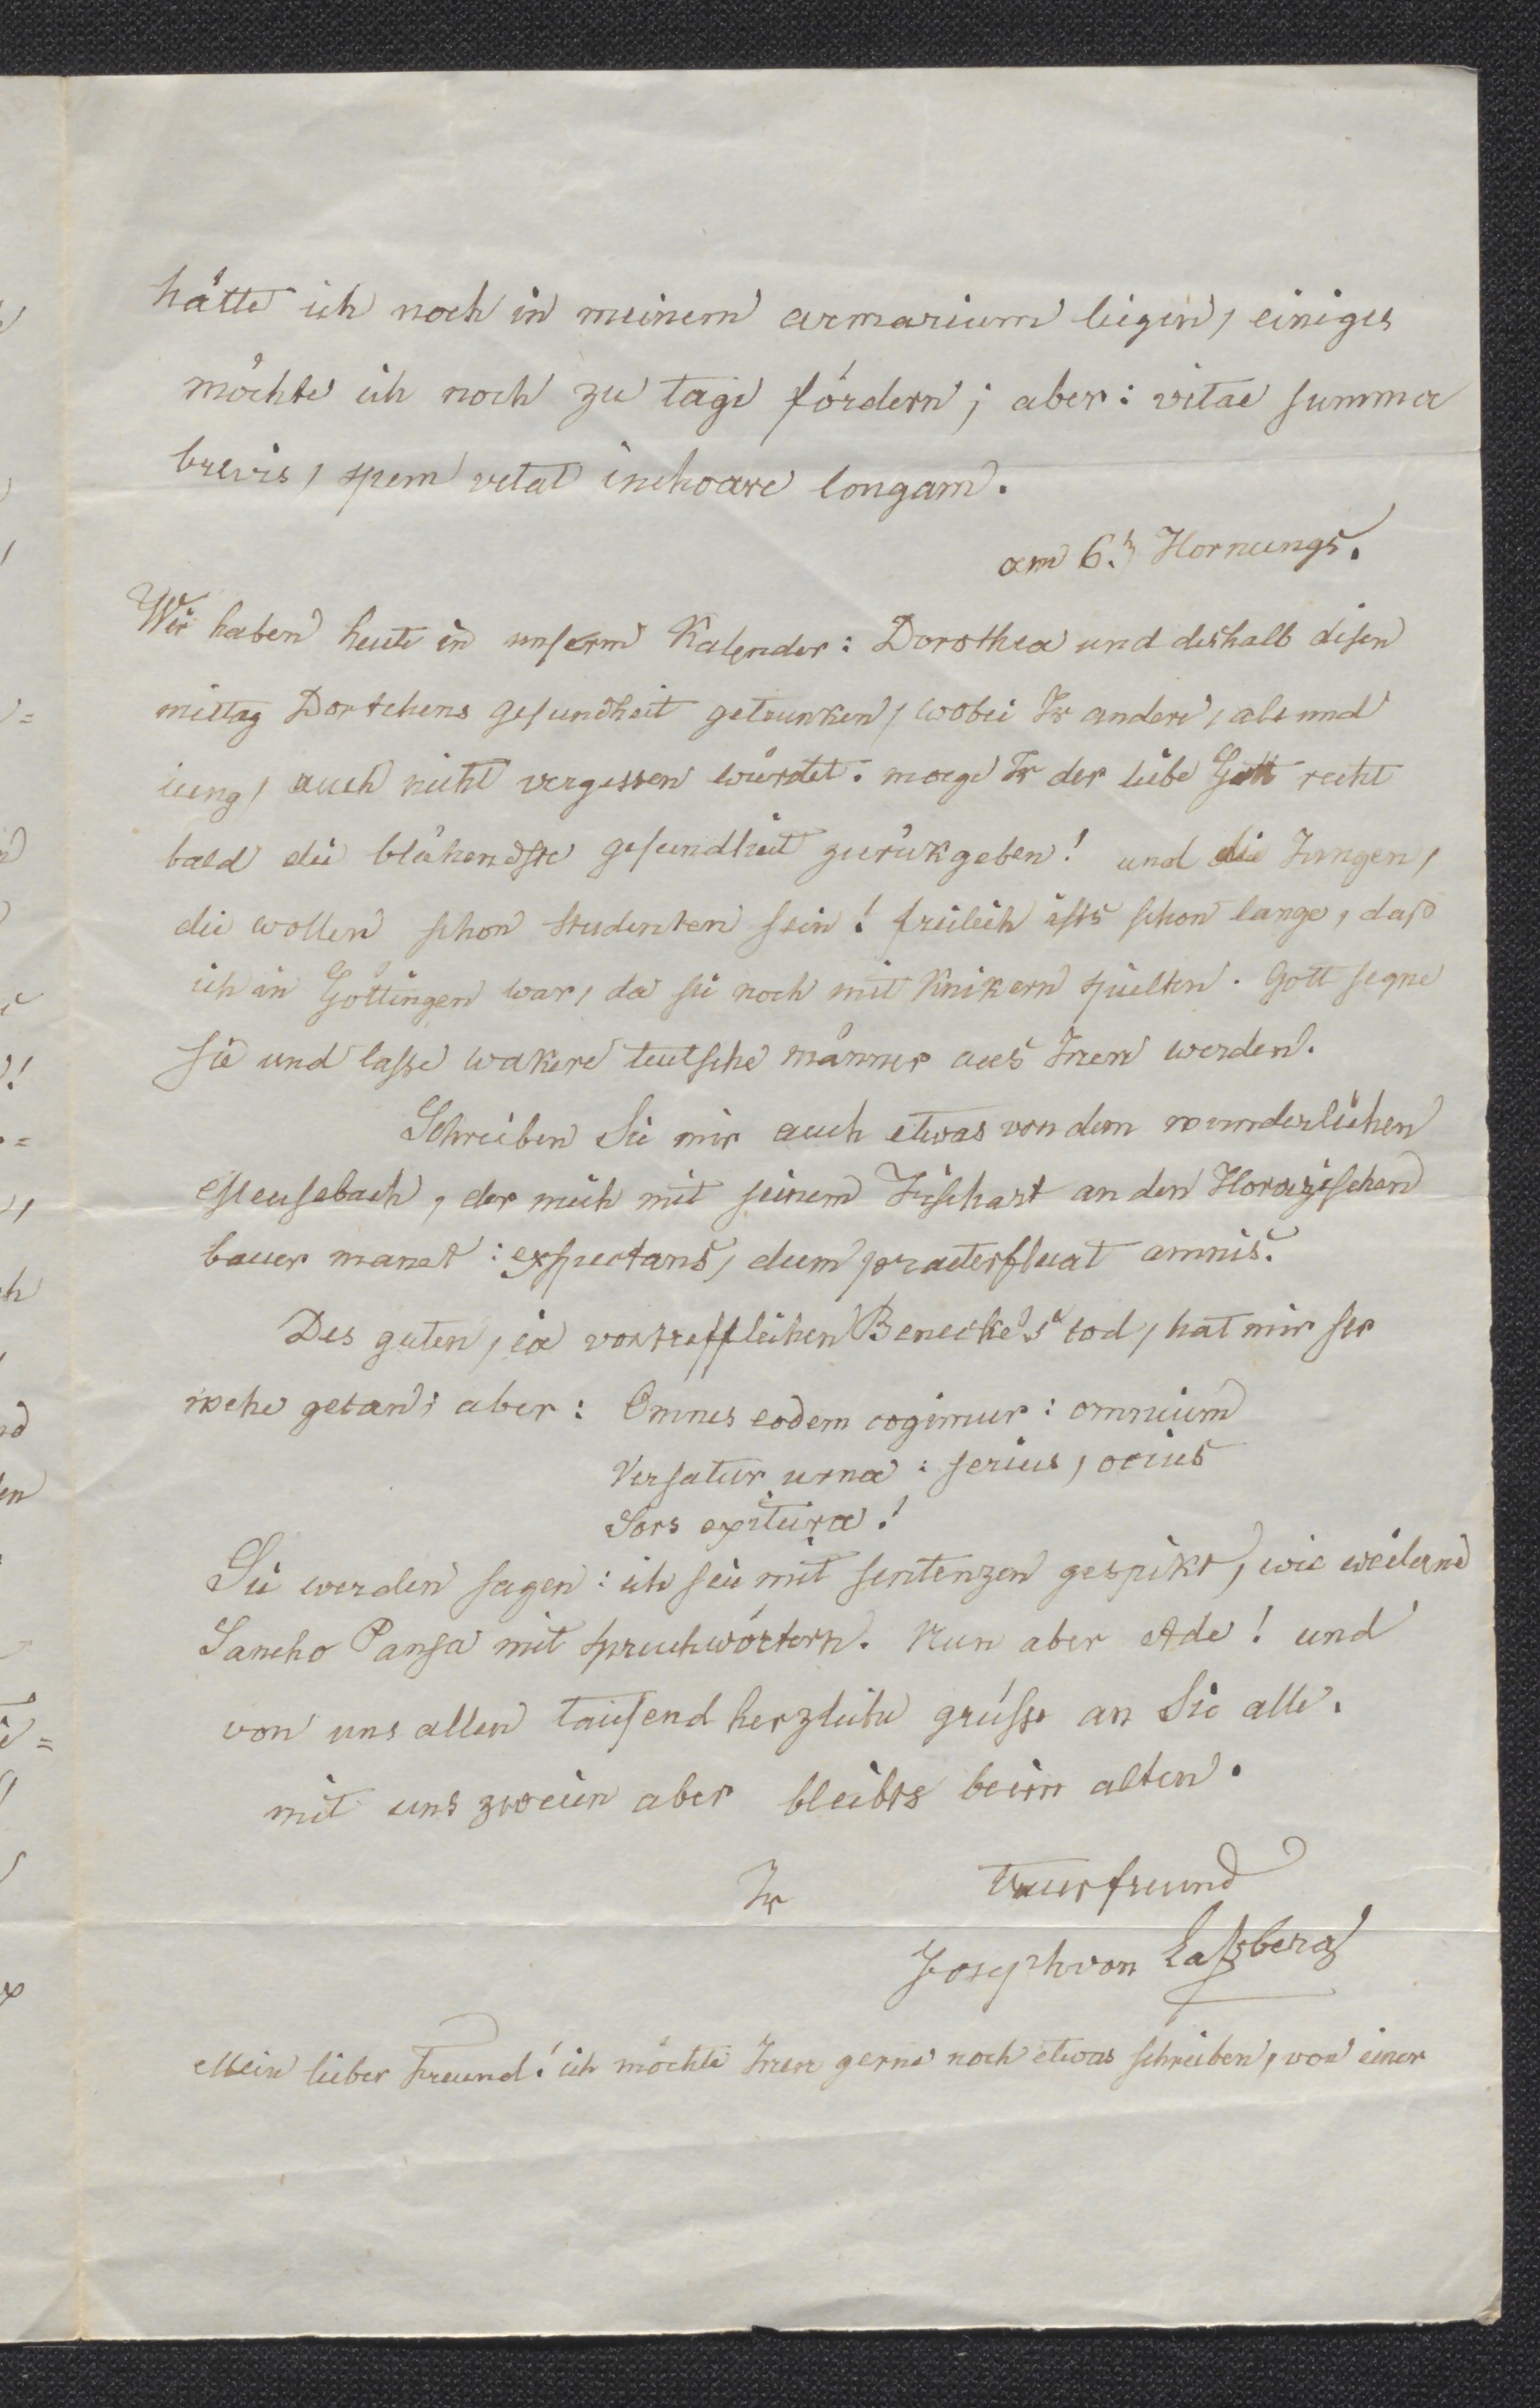 hätte ich noch in meinem armarium liegen, einiges
möchte ich noch zu tage fördern; aber: vitae summa
brevis, spem vetat inchoare longam.
am 6.n Hornungs.
Wir haben heute in unserm Kalender: Dorothea und deshalb disen
mittag Dortchens gesundheit getrunken, wobei Ir andere, alt und
iung, auch nicht vergessen würdet. moege Ir der liebe Gott recht
bald die blühendste gesundheit zurükgeben! und die Jungen,
die wollen schon studenten sein! freilich ists schon lange, daß
ich in Göttingen war, da sie noch mit Knikern spielten. Gott segne
sie und lasse wakere teutsche männer aus Inen werden.
Schreiben Sie mir auch etwas von dem wunderlichen
Meusebach, der mich mit seinem Fischart an den Horazischen
bauer manet: exspectans, dum praeterfluat amnis.
Des guten, ia vortrefflichen Benecke's tod, hat mir ser
wehe getan; aber: Omnes eodem cogimur: omnium
Versatur urna: serius, ocius
Sors exitura!
Sie werden sagen: ich seie mit sentenzen gespikt, wie weiland
Sancho Pansa mit spruchwörtern. Nun aber Ade! und
von uns allen tausend herzliche grüsse an Sie alle.
mit uns zweien aber bleibts beim alten.
Ir treuer freund
Joseph von Laßberg
Mein lieber Freund! ich möchte Inen gerne noch etwas schreiben, von einer